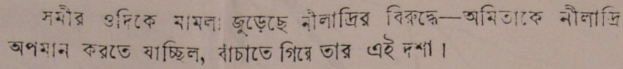 সমীর ওদিকে মামলা জুড়েছে নীলাদ্রির বিরুদ্ধে—অমিতাকে নীলাদ্রি
অপমান করতে যাচ্ছিল, বাঁচাতে গিয়ে তার এই দশা।